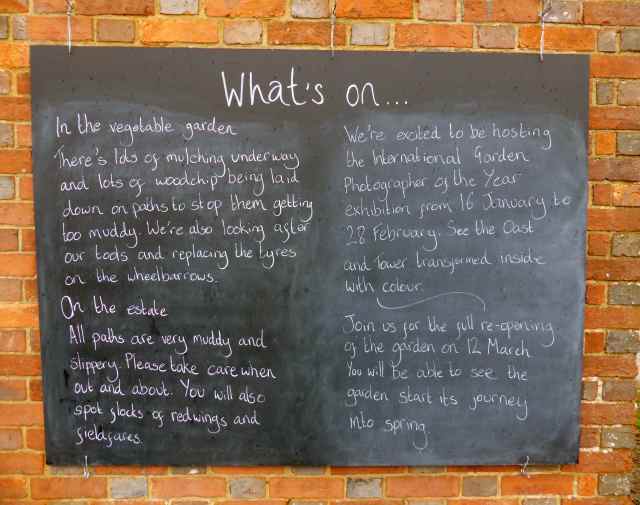 What's on...
In the vegetable garden
There's lots of mulching underway
and lots of woodchip being laid
down on paths to stop them getting
too muddy. We're also looking after
our tools and replacing the tyres
on the wheelbarrows.
On the estate
All paths are very muddy and
slippery. Please take care when
out and about. You will also
spot flocks of redwings and
fieldfares.
We're excited to be hosting
the International Garden
Photographer of the Year
exhibition from 16 January to
28 February. See the Oast
and Tower transformed inside
with colour.
Join us for the full re-opening
of the garden on 12 March
You will be able to see the
garden start its journey
into spring.